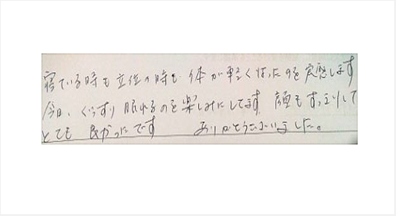 寝ている時も立位の時も 体が軽くなったのを実感します
今日、ぐっすり眠れるのを楽しみにしてます 顔もすっきりして
とても良かったです ありがとうございました。